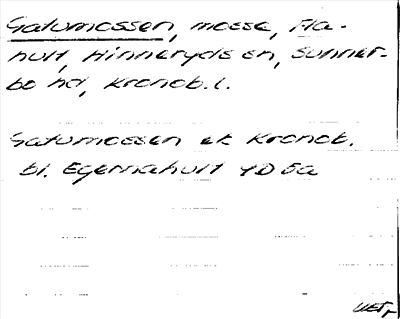 Gatumossen, mosse, Fla-
hult, Hinneryds sn, Sunner-
bo hd, Kronob. l.
Gatumossen ek Kronob.
bl. Egernahult 4D 5a